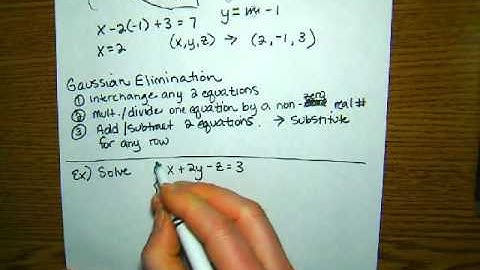 x - 2(-1) + 3 = 7
y = -1
x = 2 (x, y, z) → (2, -1, 3)
Gaussian Elimination
① Interchange any 2 equations
② mult./divide one equation by a non-zero real #
③ Add/subtract 2 equations. → substitute
for any row
Ex) Solve x + 2y - z = 3